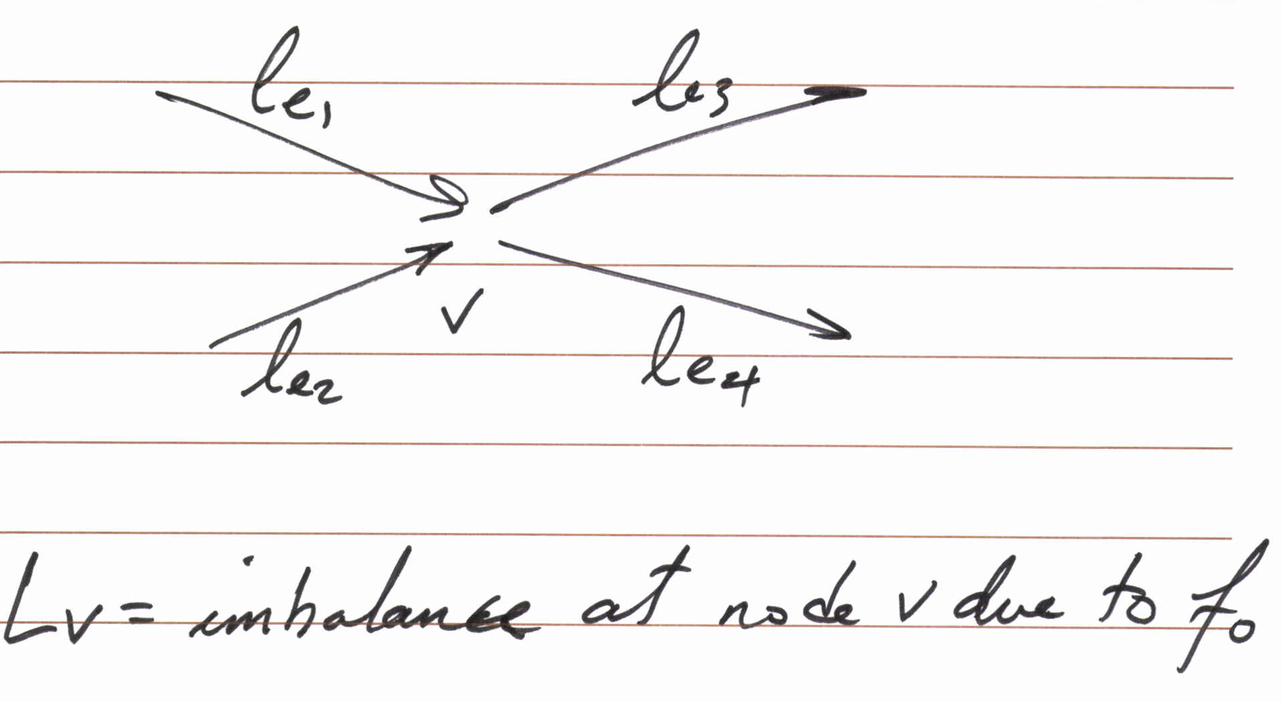 le₁ le₃
le₂ v le₄
Lv = imbalance at node v due to f₀